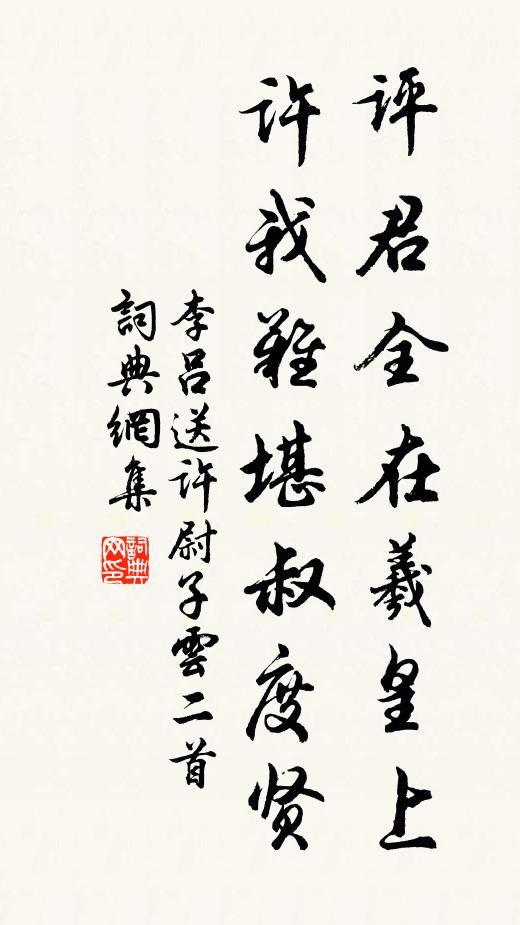 评君全在羲皇上
许我难堪叔度贤
李吕送許尉子雲二首
詞典網集
詞典網印